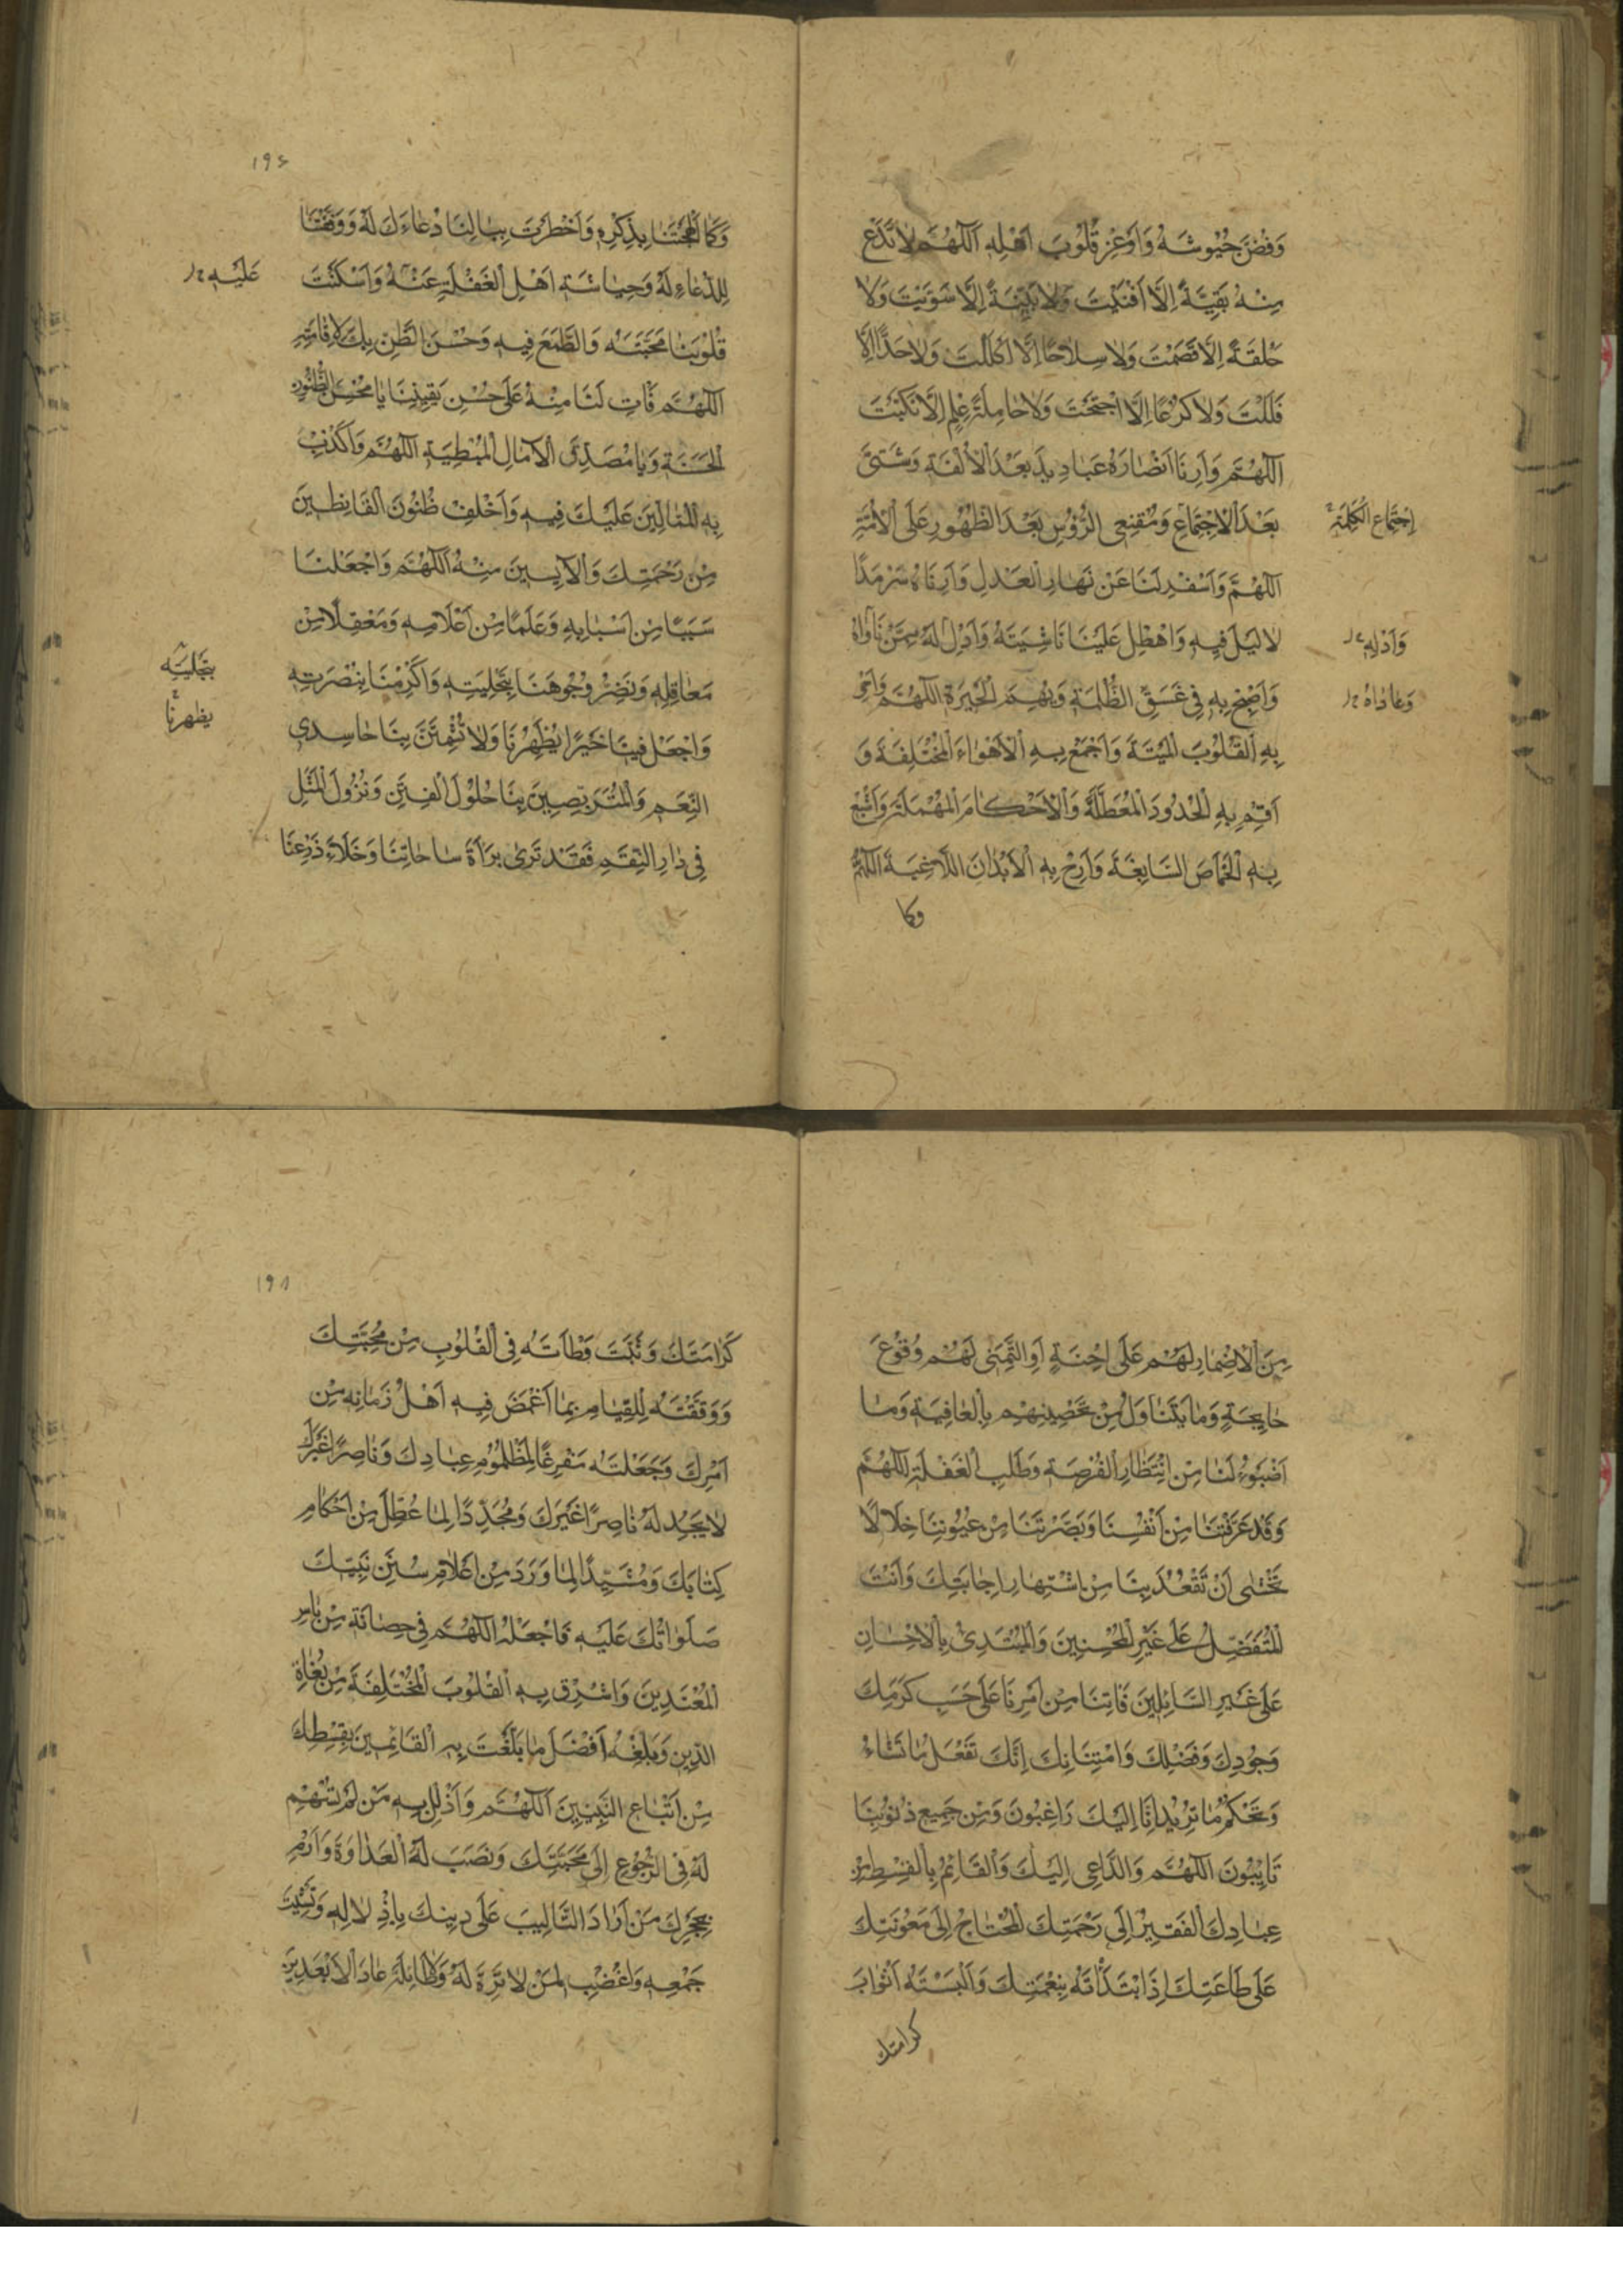 وَفُضَّ جُيُوشَهُ وَاَوْعِزْ قُلُوبَ اَهْلِهِ اَللّٰهُمَّ لَا تَدَعْ
مِنْهُ بَقِيَّةً اِلَّا اَفْنَيْتَ وَلَا بَنِيَّةً اِلَّا سَوَّيْتَ وَلَا
حَلْقَةً اِلَّا قَصَمْتَ وَلَا سِلَاحًا اِلَّا اَكْلَلْتَ وَلَا حَدًّا اِلَّا
فَلَلْتَ وَلَا كُرَاعًا اِلَّا اجْتَحْتَ وَلَا حَامِلَةَ عَلَمٍ اِلَّا نَكَبْتَ
اَللّٰهُمَّ وَاَرِنَا اَنْصَارَهُ عَبَادِيدَ بَعْدَ الْاُلْفَةِ وَشَتّٰى
بَعْدَ الْاِجْتِمَاعِ وَمُقْنِعِى الرُّؤُسِ بَعْدَ الظُّهُورِ عَلَى الْاُمَّةِ
اِجْتِمَاعِ الْكَلِمَةِ
اَللّٰهُمَّ وَاَسْفِرْ لَنَا عَنْ نَهَارِ الْعَدْلِ وَاَرِنَاهُ سَرْمَدًا
لَا لَيْلَ فِيهِ وَاهْطِلْ عَلَيْنَا نَاشِئَتَهُ وَاَدِلْ لَهُ مِمَّنْ نَاوَاهُ
وَاَدْلِهِ
وَاَصْبِحْ بِهِ فِى غَسَقِ الظُّلْمَةِ وَبُهَمِ الْحَيْرَةِ اَللّٰهُمَّ وَاَحْىِ
وَعَادَاهُ
بِهِ الْقُلُوبَ الْمَيْتَةَ وَاجْمَعْ بِهِ الْاَهْوَاءَ الْمُخْتَلِفَةَ وَ
اَقِمْ بِهِ الْحُدُودَ الْمُعَطَّلَةَ وَالْاَحْكَامَ الْمُهْمَلَةَ وَاَشْبِعْ
بِهِ الْخِمَاصَ السَّاغِبَةَ وَاَرِحْ بِهِ الْاَبْدَانَ اللَّاغِبَةَ اَللّٰهُمَّ
وكما
۱۹۶
وَكَمَا اَلْهَجْتَنَا بِذِكْرِهِ وَاَخْطَرْتَ بِبَالِنَا دُعَاءَكَ لَهُ وَوَفَّقْتَنَا
لِلدُّعَاءِ لَهُ وَحِيَاشَةِ اَهْلِ الْغَفْلَةِ عَنْهُ وَاَسْكَنْتَ
عَلَيْهِ
قُلُوبَنَا مَحَبَّتَهُ وَالطَّمَعَ فِيهِ وَحُسْنَ الظَّنِّ بِكَ لِاِقَامَتِهِ
اَللّٰهُمَّ فَاٰتِ لَنَا مِنْهُ عَلٰى حُسْنِ يَقِينِنَا يَا مُحَسِّنَ الظُّنُونِ
الْحَسَنَةِ وَيَا مُصَدِّقَ الْاٰمَالِ الْمُبْطِيَةِ اَللّٰهُمَّ وَاَكْذِبْ
بِهِ الْمُتَاَلِّينَ عَلَيْكَ فِيهِ وَاَخْلِفْ ظُنُونَ الْقَانِطِينَ
مِنْ رَحْمَتِكَ وَالْاٰيِسِينَ مِنْهُ اَللّٰهُمَّ وَاجْعَلْنَا
سَبَبًا مِنْ اَسْبَابِهِ وَعَلَمًا مِنْ اَعْلَامِهِ وَمَعْقِلًا مِنْ
مَعَاقِلِهِ وَنَضِّرْ وُجُوهَنَا بِتَحْلِيَتِهِ وَاَكْرِمْنَا بِنُصْرَتِهِ
بِتَجْلِيَتِهِ
وَاجْعَلْ فِينَا خَيْرًا يُظْهِرُنَا وَلَا تُشْمِتَنَّ بِنَا حَاسِدِى
يظهرنا
النِّعَمِ وَالْمُتَرَبِّصِينَ بِنَا حُلُولَ الْفِتَنِ وَنُزُولَ الْمُثَلِ
فِى دَارِ النِّقَمِ فَقَدْ تَرٰى بَرَاءَةَ سَاحَاتِنَا وَخَلَاءَ ذَرْعِنَا
مِنَ الْاِضْمَارِ لَهُمْ عَلٰى اِحْنَةٍ اَوِ التَّمَنِّى لَهُمْ وُقُوعَ
جَايِحَةٍ وَمَا يَتَنَاوَلُ مِنْ تَحْصِينِهِمْ بِالْعَافِيَةِ وَمَا
اَضْبَوُا لَنَا مِنْ اِنْتِظَارِ الْفُرْصَةِ وَطَلَبِ الْغَفْلَةِ اَللّٰهُمَّ
وَقَدْ عَرَّفْتَنَا مِنْ اَنْفُسِنَا وَبَصَّرْتَنَا مِنْ عُيُوبِنَا خِلَالًا
نَخْشٰى اَنْ تَقْعُدَ بِنَا مِنْ اشْتِهَارِ اِجَابَتِكَ وَاَنْتَ
الْمُتَفَضِّلُ عَلٰى غَيْرِ الْمُحْسِنِينَ وَالْمُبْتَدِئُ بِالْاِحْسَانِ
عَلٰى غَيْرِ السَّائِلِينَ فَاٰتِنَا مِنْ اَمْرِنَا عَلٰى حَسَبِ كَرَمِكَ
وَجُودِكَ وَفَضْلِكَ وَامْتِنَانِكَ اِنَّكَ تَفْعَلُ مَا تَشَاءُ
وَتَحْكُمُ مَا تُرِيدُ اِنَّا اِلَيْكَ رَاغِبُونَ وَمِنْ جَمِيعِ ذُنُوبِنَا
تَايِبُونَ اَللّٰهُمَّ وَالدَّاعِى اِلَيْكَ وَالْقَائِمُ بِالْقِسْطِ مِنْ
عِبَادِكَ الْفَقِيرُ اِلٰى رَحْمَتِكَ الْمُحْتَاجُ اِلٰى مَعُونَتِكَ
عَلٰى طَاعَتِكَ اِذِ ابْتَدَاْتَهُ بِنِعْمَتِكَ وَاَلْبَسْتَهُ اَثْوَابَ
كرامتك
۱۹۸
كَرَامَتِكَ وَثَبَّتَّ وَطْاَتَهُ فِى الْقُلُوبِ مِنْ مَحَبَّتِكَ
وَوَفَّقْتَهُ لِلْقِيَامِ بِمَا اَغْمَضَ فِيهِ اَهْلُ زَمَانِهِ مِنْ
اَمْرِكَ وَجَعَلْتَهُ مَفْزَعًا لِمَظْلُومِ عِبَادِكَ وَنَاصِرًا
لَا يَجِدُ لَهُ نَاصِرًا غَيْرَكَ وَمُجَدِّدًا لِمَا عُطِّلَ مِنْ اَحْكَامِ
كِتَابِكَ وَمُشَيِّدًا لِمَا وَرَدَ مِنْ اَعْلَامِ سُنَنِ نَبِيِّكَ
صَلَوَاتُكَ عَلَيْهِ فَاجْعَلْهُ اَللّٰهُمَّ فِى حِصَانَةٍ مِنْ بَاْسِ
الْمُعْتَدِينَ وَاَشْرِقْ بِهِ الْقُلُوبَ الْمُخْتَلِفَةَ مِنْ بُغَاةِ
الدِّينِ وَبَلِّغْهُ اَفْضَلَ مَا بَلَّغْتَ بِهِ الْقَائِمِينَ بِقِسْطِكَ
مِنْ اَتْبَاعِ النَّبِيِّينَ اَللّٰهُمَّ وَاَذْلِلْ بِهِ مَنْ لَمْ تُسْهِمْ
لَهُ فِى الرُّجُوعِ اِلٰى مَحَبَّتِكَ وَنَصَبَ لَهُ الْعَدَاوَةَ وَارْمِ
بِحَجَرِكَ مَنْ اَرَادَ التَّاْلِيبَ عَلٰى دِينِكَ بِاِذْلَالِهِ وَتَشْتِيتِ
جَمْعِهِ وَاغْضَبْ لِمَنْ لَا تِرَةَ لَهُ وَلَا طَائِلَةَ عَادَ الْاَبْعَدِينَ